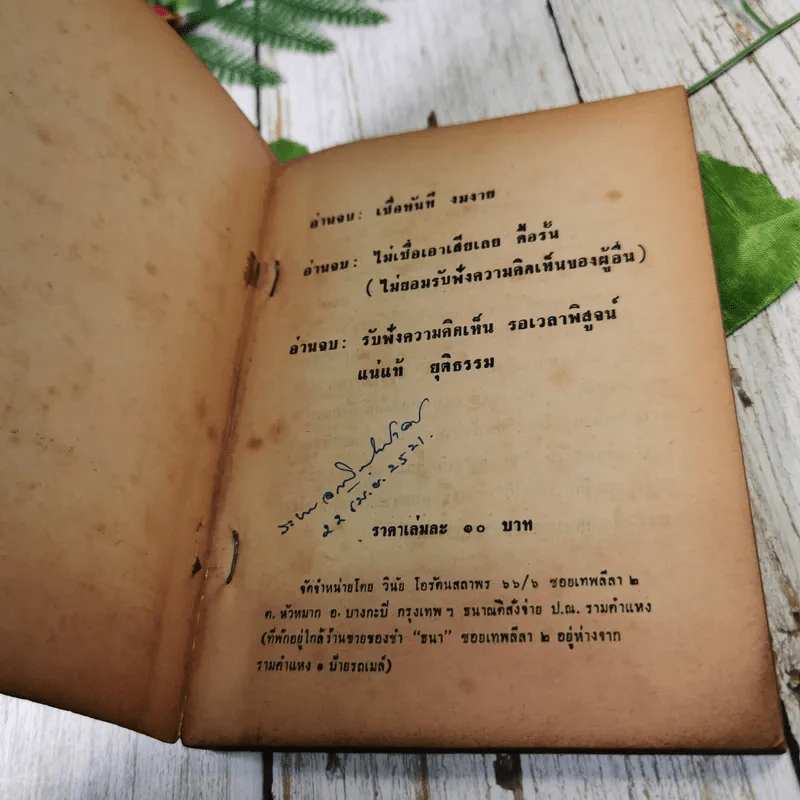 อ่านจบ: เชื่อทันที งมงาย
อ่านจบ: ไม่เชื่อเอาเสียเลย ดื้อรั้น
(ไม่ยอมรับฟังความคิดเห็นของผู้อื่น)
อ่านจบ: รับฟังความคิดเห็น รอเวลาพิสูจน์
แน่แท้ ยุติธรรม
๒๒ เม.ย. 2521.
ราคาเล่มละ ๑๐ บาท
จัดจำหน่ายโดย วินัย โอรัตนสถาพร ๖๖/๖ ซอยเทพลีลา ๒
ต. หัวหมาก อ. บางกะปิ กรุงเทพ ฯ ธนาณัติสั่งจ่าย ป.ณ. รามคำแหง
(ที่พักอยู่ใกล้ร้านขายของชำ "ธนา" ซอยเทพลีลา ๒ อยู่ห่างจาก
รามคำแหง ๑ ป้ายรถเมล์)